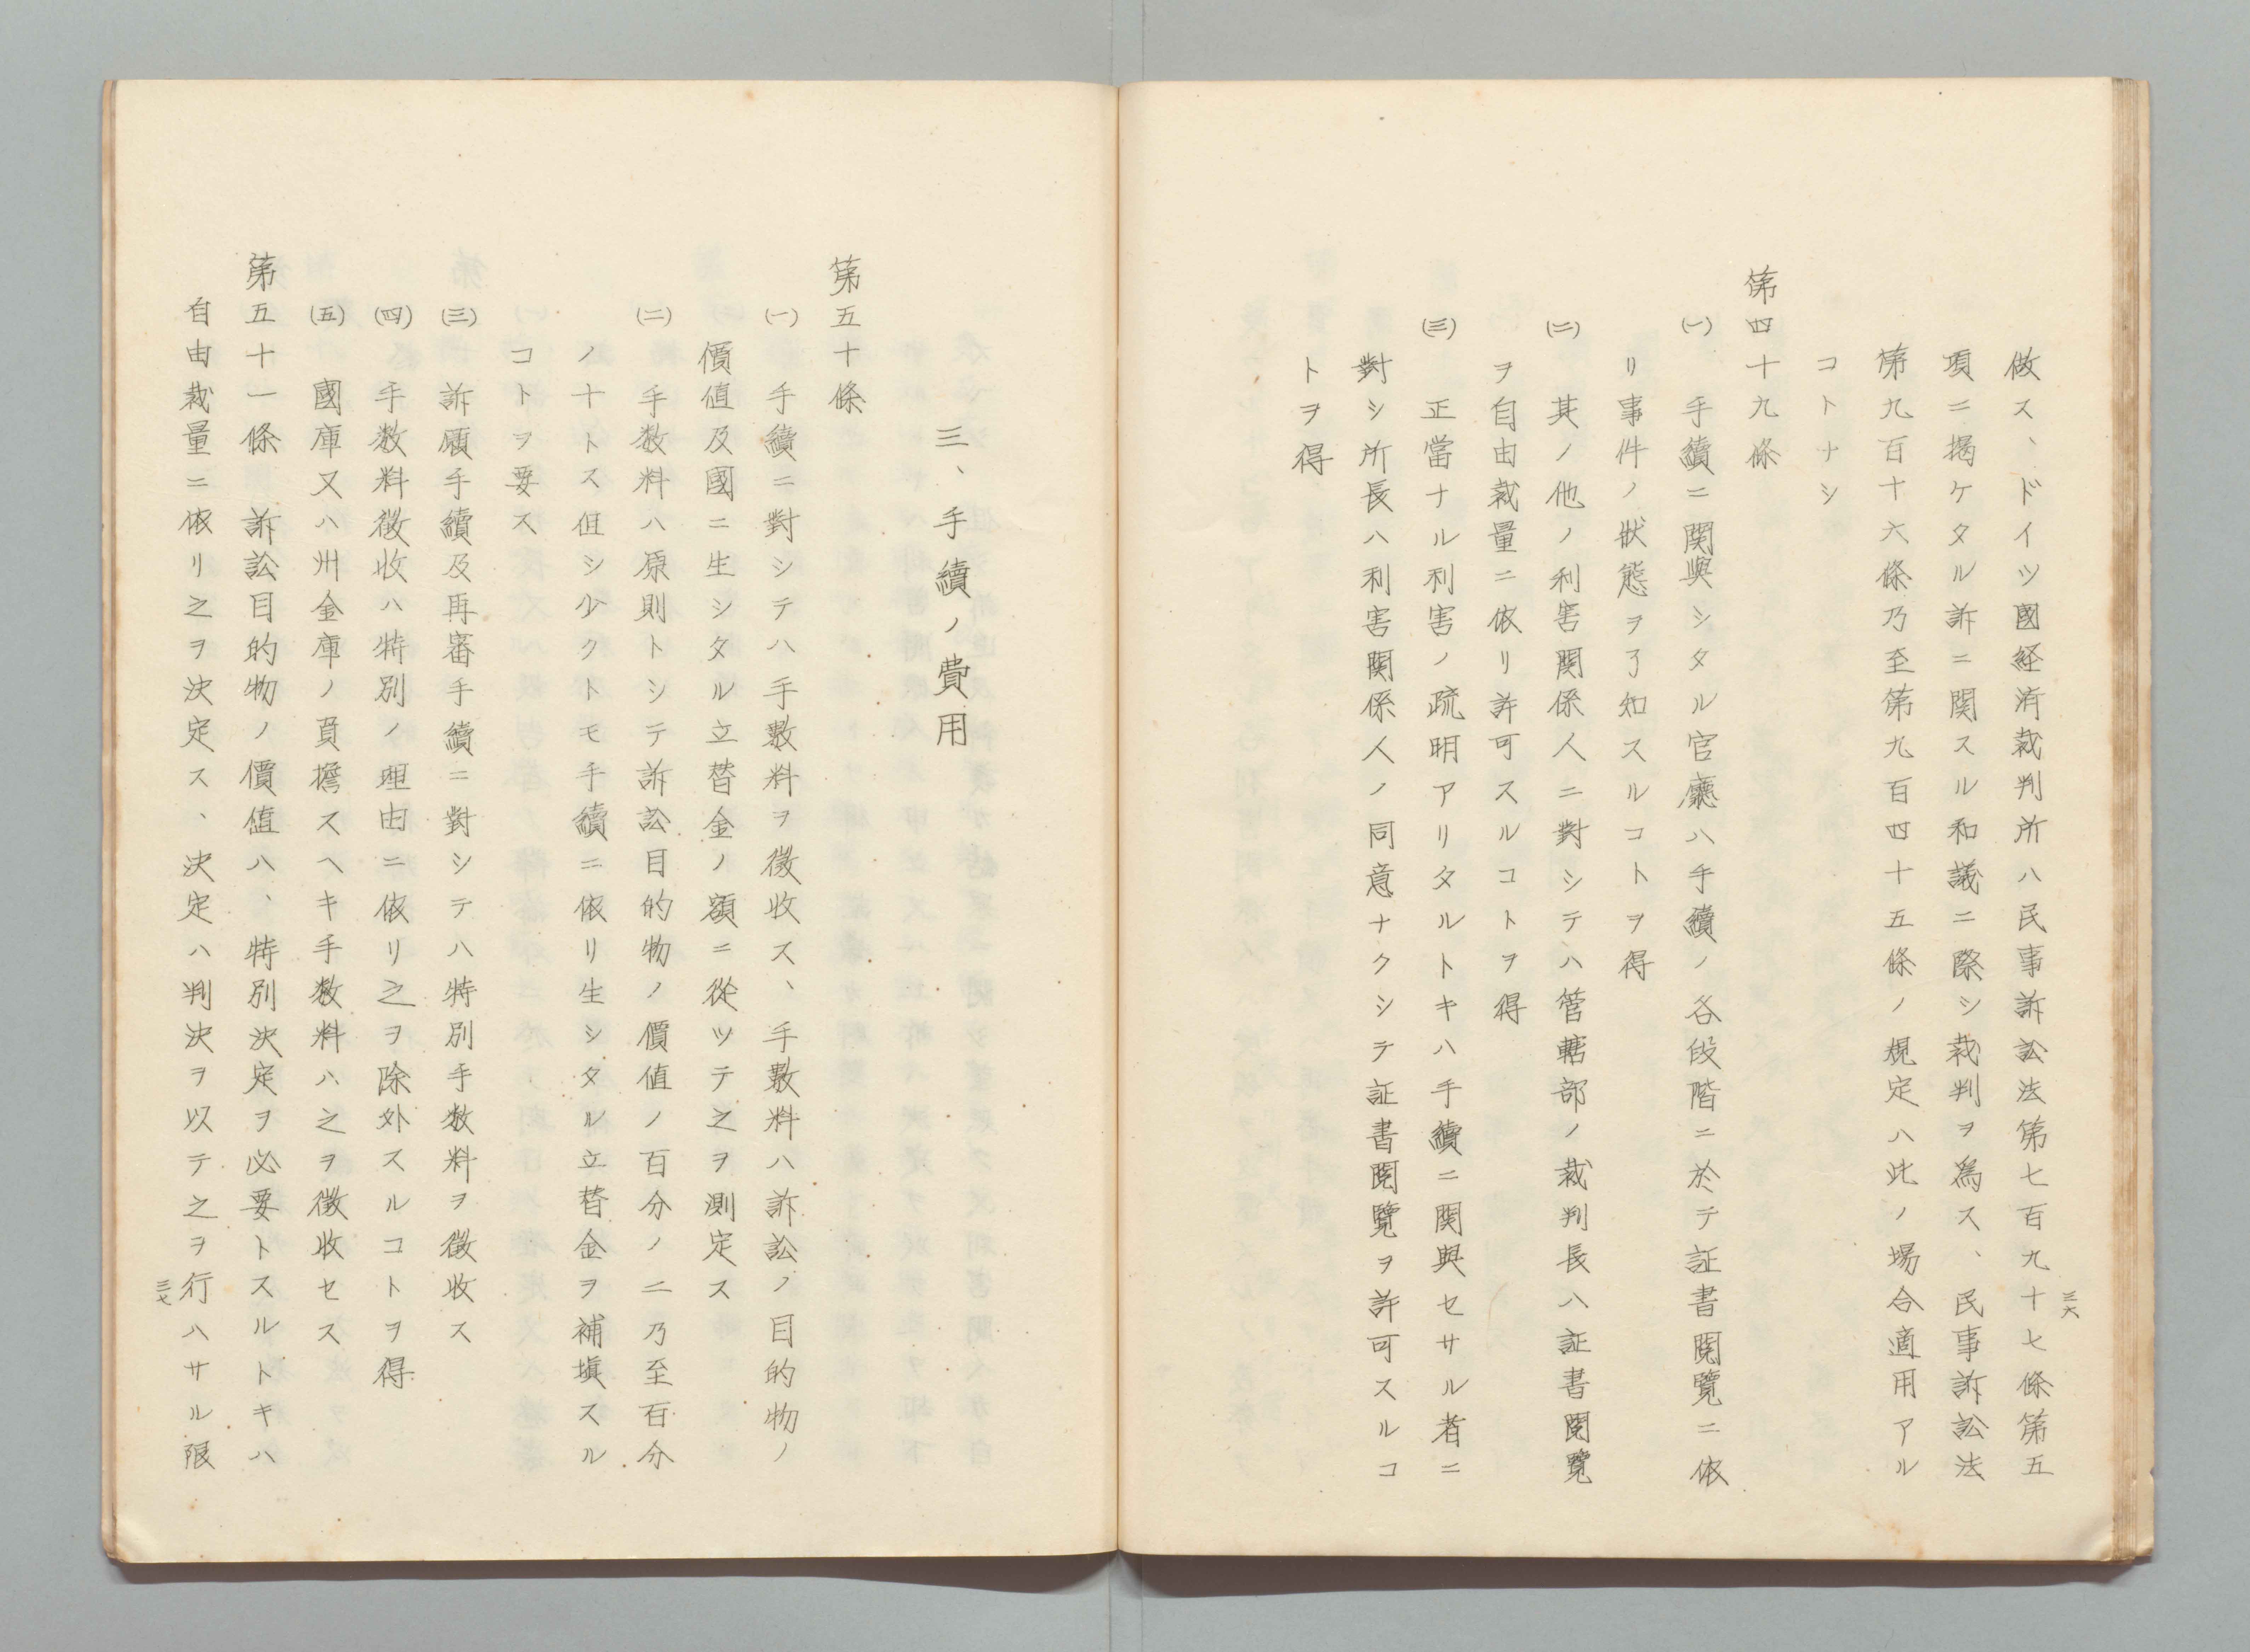 做ス、ドイツ國経済裁判所ハ民事訴訟法第七百九十七條第五
項ニ掲ケタル訴ニ関スル和議ニ際シ裁判ヲ為ス、民事訴訟法
第九百十六條乃至第九百四十五條ノ規定ハ此ノ場合適用アル
コトナシ
第四十九條
(一) 手續ニ関與シタル官廳ハ手續ノ各段階ニ於テ証書閲覽ニ依
リ事件ノ状態ヲ了知スルコトヲ得
(二) 其ノ他ノ利害関係人ニ對シテハ管轄部ノ裁判長ハ証書閲覽
ヲ自由裁量ニ依リ許可スルコトヲ得
(三) 正當ナル利害ノ疏明アリタルトキハ手續ニ関與セサル者ニ
對シ所長ハ利害関係人ノ同意ナクシテ証書閲覽ヲ許可スルコ
トヲ得
三六
三、手續ノ費用
第五十條
(一) 手續ニ對シテハ手數料ヲ徴收ス、手數料ハ訴訟ノ目的物ノ
價値及國ニ生シタル立替金ノ額ニ從ツテ之ヲ測定ス
(二) 手数料ハ原則トシテ訴訟目的物ノ價値ノ百分ノ二乃至百分
ノ十トス但シ少クトモ手續ニ依リ生シタル立替金ヲ補塡スル
コトヲ要ス
(三) 訴願手續及再審手續ニ對シテハ特別手数料ヲ徴收ス
(四) 手数料徴收ハ特別ノ理由ニ依リ之ヲ除外スルコトヲ得
(五) 國庫又ハ州金庫ノ負擔スヘキ手数料ハ之ヲ徴收セス
第五十一條 訴訟目的物ノ價値ハ、特別決定ヲ必要トスルトキハ
自由裁量ニ依リ之ヲ決定ス、決定ハ判決ヲ以テ之ヲ行ハサル限
三七